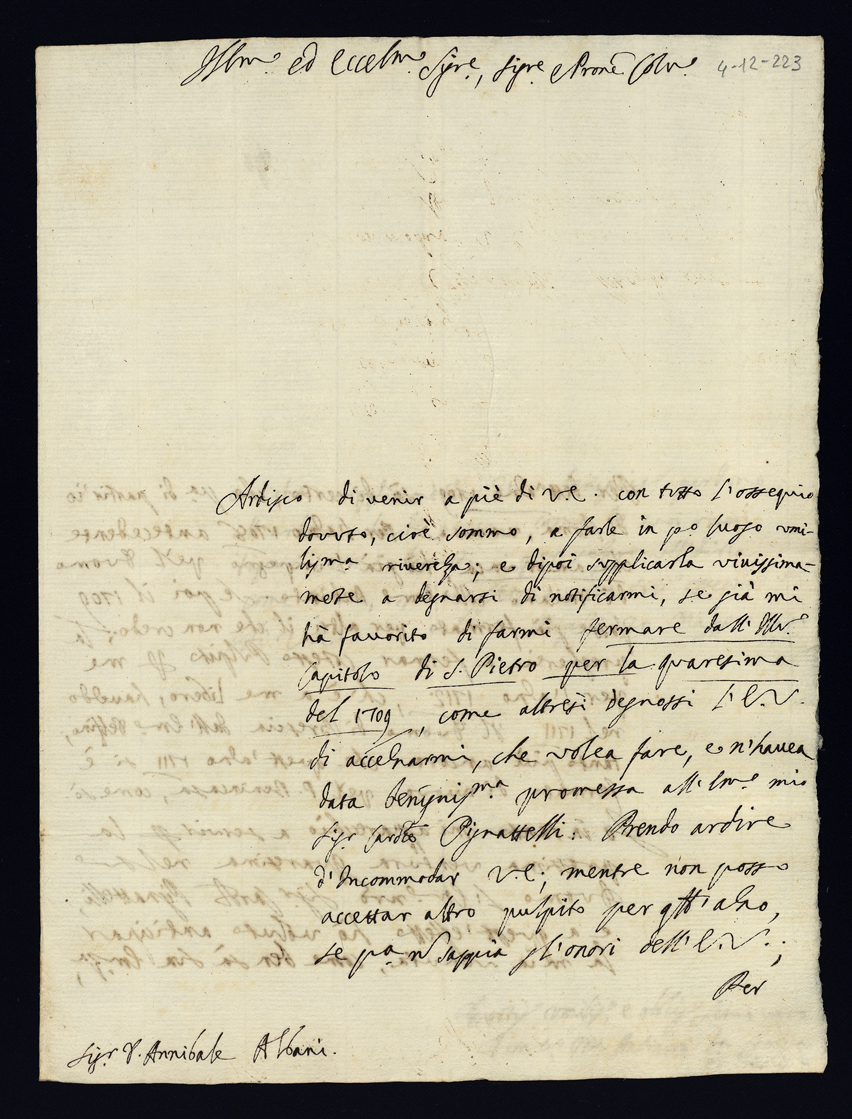 Illmo ed Eccellmo Sigre, Sigre e Prone Colmo 4-12-223
Ardisco di venir a piè di V.E. con tutto l'ossequio
dovuto, cioè sommo, a farle in po luogo umi-
lissma riverenza; e dipoi supplicarla vivissima-
mete a degnarsi di notificarmi, se già mi
hà favorito di farmi fermare dall'Illmo
Capitolo di S. Pietro per la quaresima
del 1709, come altresì degnossi l'E.V.
di accennarmi, che volea fare, e n'havea
data benignissma promessa all'Emo mio
Sigr Cardle Pignattelli. Prendo ardire
d'incommodar V.E.; mentre non posso
accettar altro pulpito per qtt'anno,
se pa nō sappia gl'onori dell'E.V.;
Per
Sigr D. Annibale Albani.